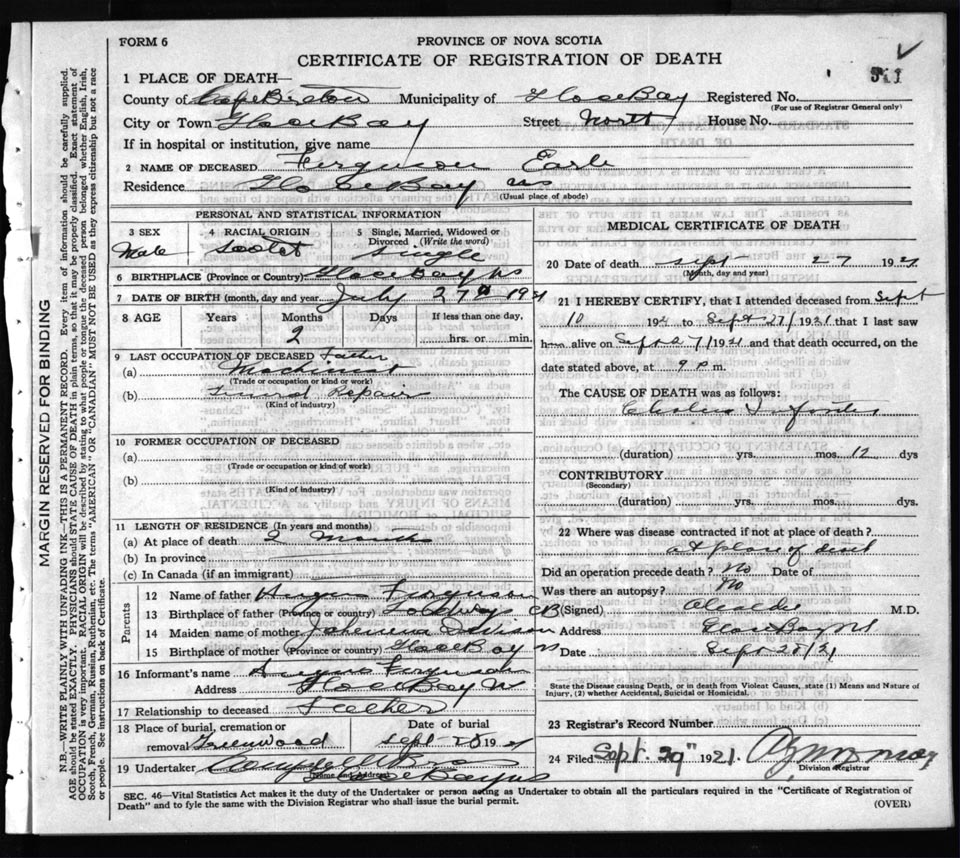 FORM 6
PROVINCE OF NOVA SCOTIA
CERTIFICATE OF REGISTRATION OF DEATH
1 PLACE OF DEATH—
County of Cape Breton Municipality of Glace Bay Registered No.
(For use of Registrar General only)
City or Town Glace Bay Street North House No.
If in hospital or institution, give name
2 NAME OF DECEASED Ferguson Earle
Residence Glace Bay NS
(Usual place of abode)
PERSONAL AND STATISTICAL INFORMATION
3 SEX Male
4 RACIAL ORIGIN Scotch
5 Single, Married, Widowed or Divorced (Write the word) Single
6 BIRTHPLACE (Province or Country) Glace Bay NS
7 DATE OF BIRTH (month, day and year) July 27th 1921
8 AGE Years Months Days If less than one day,
2 hrs. or min.
9 LAST OCCUPATION OF DECEASED Father
(a) Machinist
(Trade or occupation or kind or work)
(b) Repairs
(Kind of industry)
10 FORMER OCCUPATION OF DECEASED
(a)
(Trade or occupation or kind of work)
(b)
(Kind of industry)
11 LENGTH OF RESIDENCE (In years and months)
(a) At place of death 2 Months
(b) In province
(c) In Canada (if an immigrant)
Parents
12 Name of father Angus Ferguson
13 Birthplace of father (Province or country) CB
14 Maiden name of mother
15 Birthplace of mother (Province or country) Glace Bay NS
16 Informant's name Angus Ferguson
Address Glace Bay NS
17 Relationship to deceased Father
18 Place of burial, cremation or removal Greenwood
Date of burial Sept 28 1921
19 Undertaker
(Name and address) Glace Bay NS
MEDICAL CERTIFICATE OF DEATH
20 Date of death Sept 27 1921
(Month, day and year)
21 I HEREBY CERTIFY, that I attended deceased from Sept
10 1921 to Sept 27/1921 that I last saw
h alive on Sept 27/1921 and that death occurred, on the
date stated above, at 9 P m.
The CAUSE OF DEATH was as follows:
Cholera Infantum
(duration) yrs. mos. 12 dys
CONTRIBUTORY
(Secondary)
(duration) yrs. mos. dys.
22 Where was disease contracted if not at place of death?
at place of death
Did an operation precede death? No Date of
Was there an autopsy? No
(Signed) M.D.
Address Glace Bay NS
Date Sept 28/21
State the Disease causing Death, or in death from Violent Causes, state (1) Means and Nature of
Injury, (2) whether Accidental, Suicidal or Homicidal.
23 Registrar's Record Number
24 Filed Sept. 29" 1921.
Division Registrar
SEC. 46—Vital Statistics Act makes it the duty of the Undertaker or person acting as Undertaker to obtain all the particulars required in the "Certificate of Registration of
Death" and to fyle the same with the Division Registrar who shall issue the burial permit.
(OVER)
MARGIN RESERVED FOR BINDING
N.B.—WRITE PLAINLY WITH UNFADING INK—THIS IS A PERMANENT RECORD. Every item of information should be carefully supplied.
AGE should be stated EXACTLY. PHYSICIANS should STATE CAUSE OF DEATH in plain terms, so that it may be properly classified. Exact statement of
OCCUPATION is very important. RACIAL ORIGIN will be described by stating to what people or tongue the deceased person belonged whether English, Irish,
Scotch, French, German, Russian, Ruthenian, etc. The terms "AMERICAN" OR "CANADIAN" MUST NOT BE USED as they express citizenship but not a race
or people. See instructions on back of Certificate.